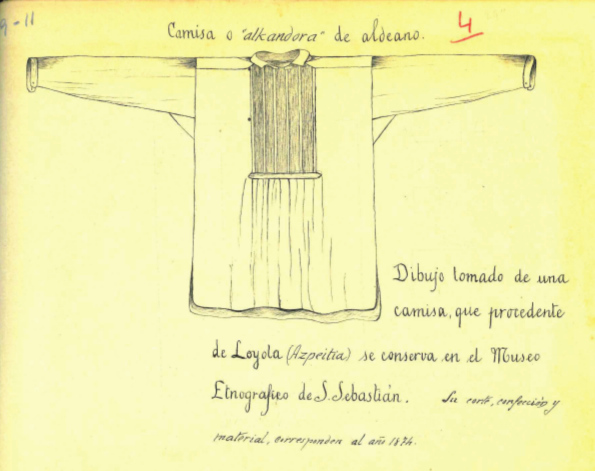 9-11
Camisa o "alkandora" de aldeano.
4
Dibujo tomado de una
camisa, que procedente
de Loyola (Azpeitia) se conserva en el Museo
Etnografico de S. Sebastián.
Su corte, confección y
material, corresponden al año 1874.